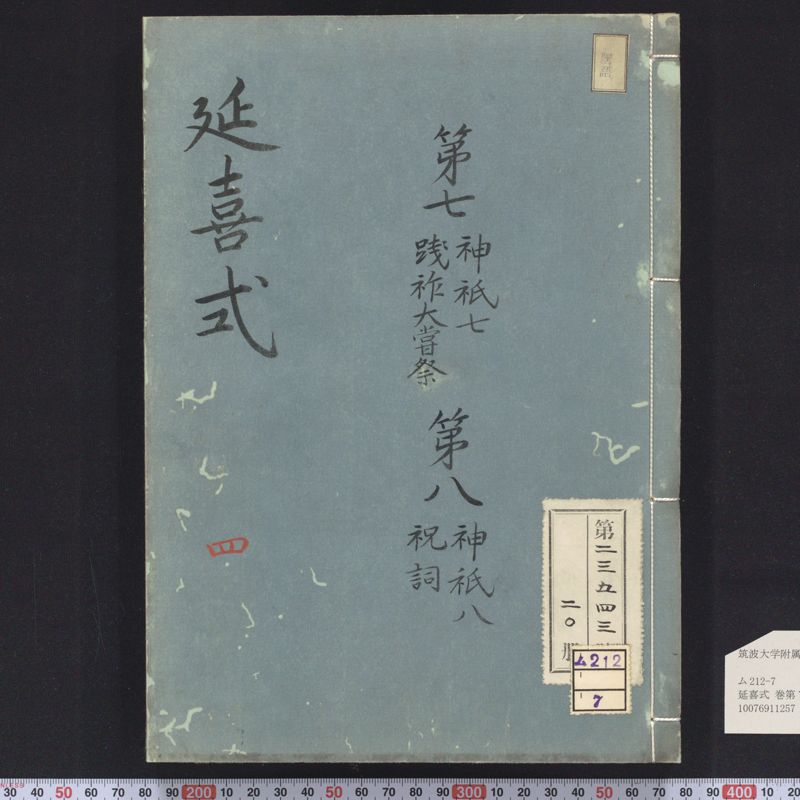 延喜式
第七
神祇七
践祚大嘗祭
第八
神祇八
祝詞
四
第二三五四三
二〇冊
ム212
7
筑波大学附属
ム212-7
延喜式 巻第7
10076911257
30 40 50 60 70 80 90 200 10 20 30 40 50 60 70 80 90 300 10 20 30 40 50 60 70 80 90 400 10 20